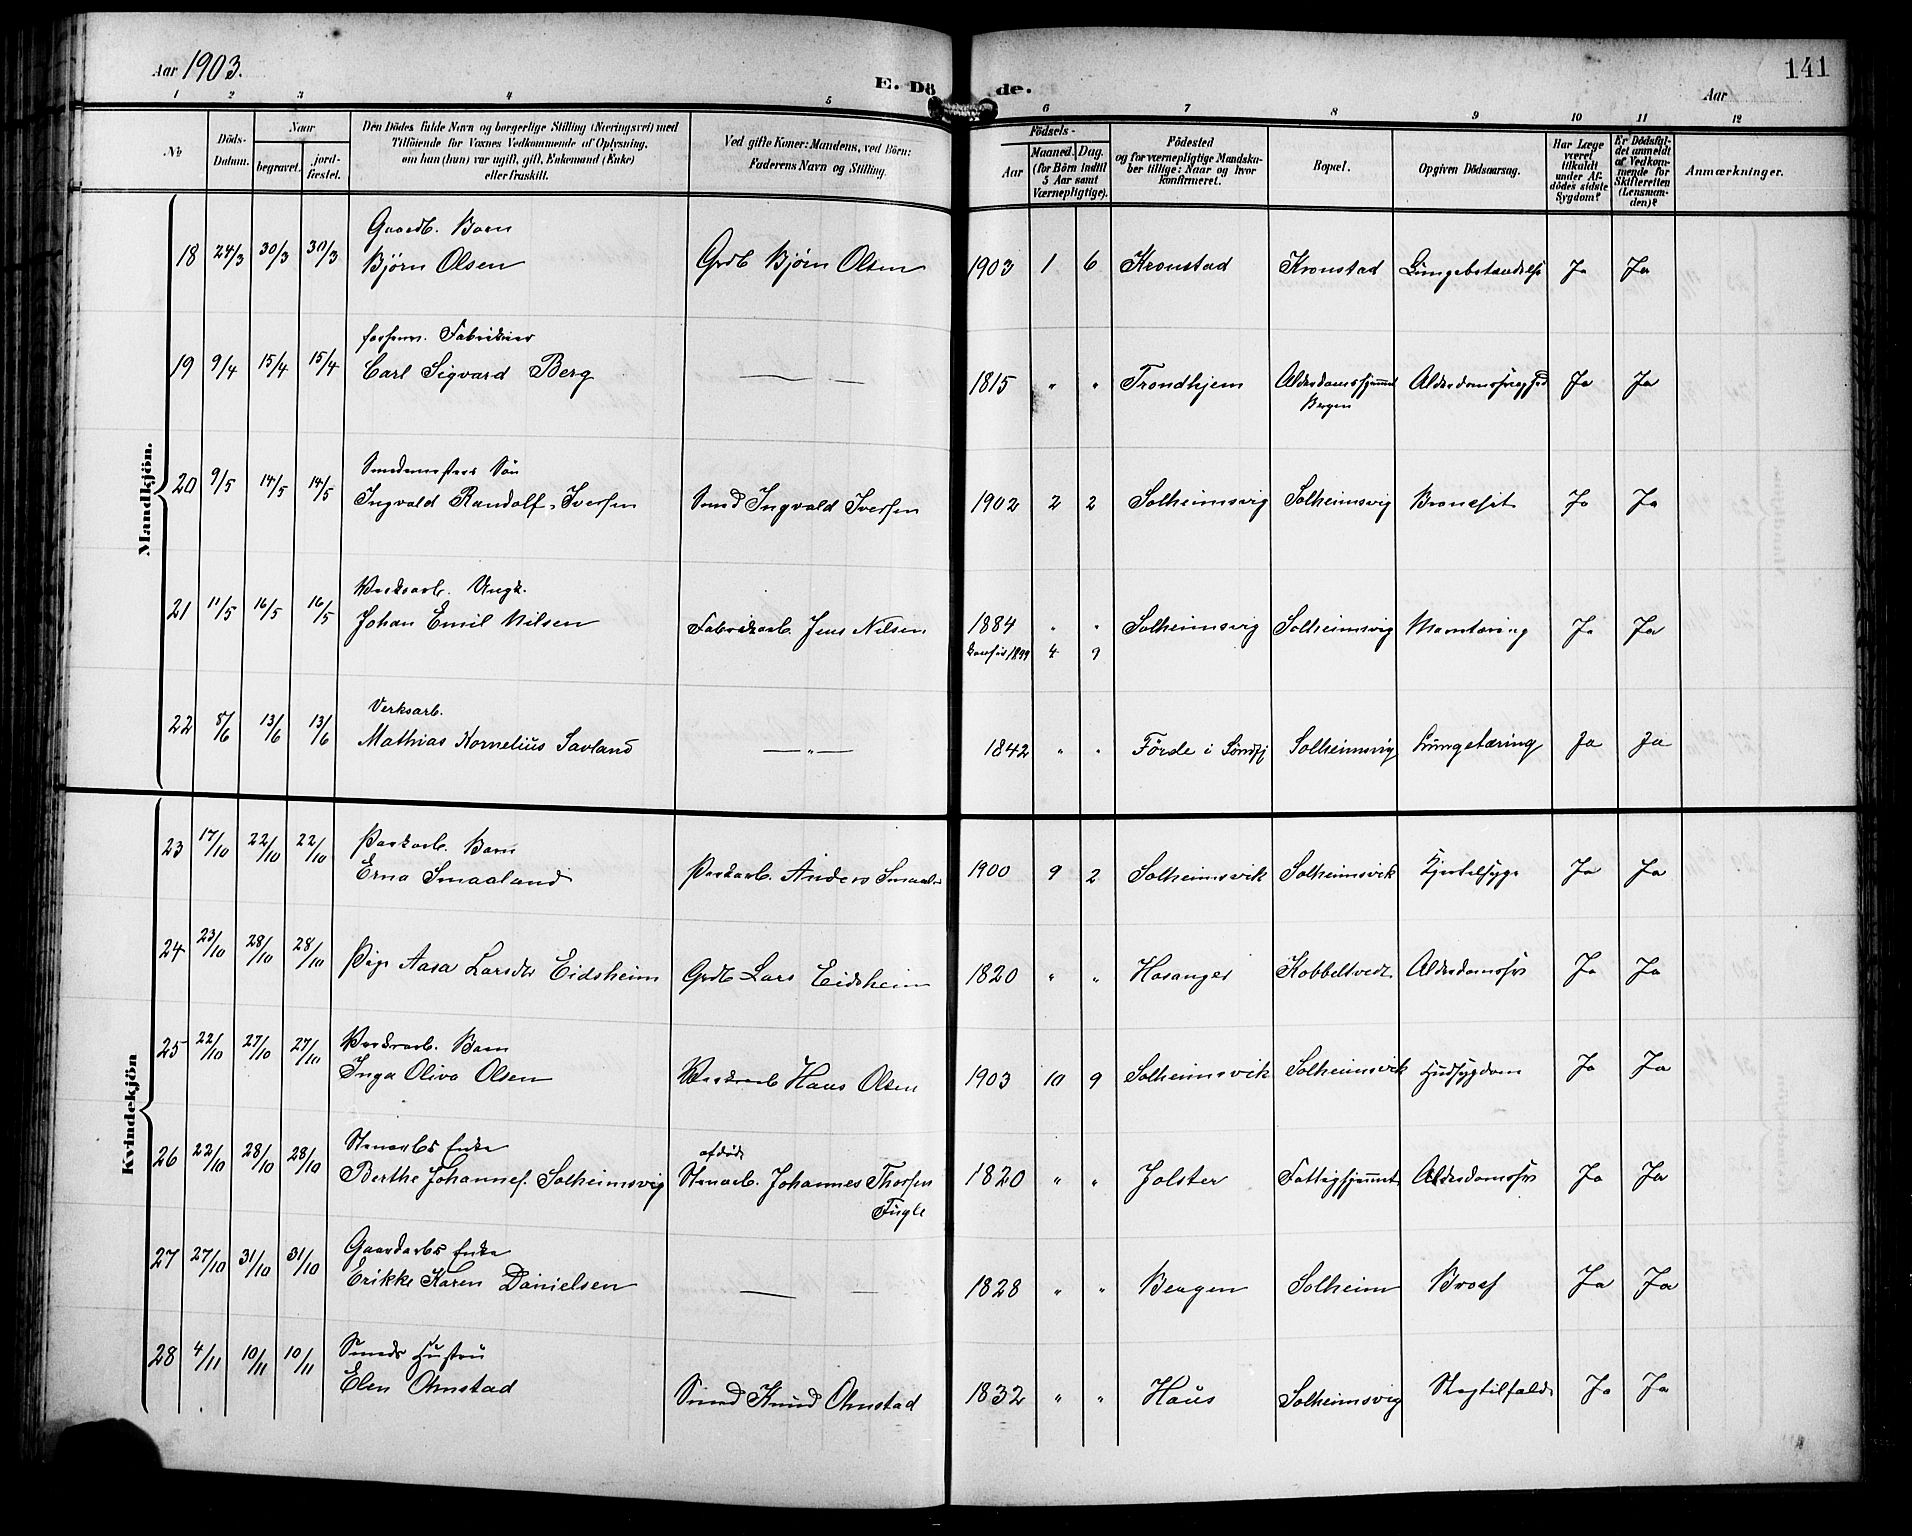 Aar 1903.
E. Dö de.
141
Aar
1 2 3 4 5 6 7 8 9 10 11 12
No
Döds-Datum.
Naar
begravet.
jord-fæstet.
Den Dödes fulde Navn og borgerlige Stilling (Næringsvei) med
Tilföiende for Voxnes Vedkommende af Oplysning,
om han (hun) var ugift, gift, Enkemand (Enke)
eller fraskilt.
Ved gifte Koner: Mandens, ved Börn:
Faderens Navn og Stilling.
Födsels-
Aar
Maaned. Dag.
(for Börn indtil
5 Aar samt
Værnepligtige).
Födested
og for værnepligtige Mandska-
ber tillige: Naar og hvor
konfirmeret.
Bopæl.
Opgiven Dödsaarsag.
Har Læge
været
tilkaldt
under Af-
dödes sidste
Sygdom?
Er Dödsfal-
det anmeldt
af Vedkom-
mende for
Skifteretten
(Lensman-
den)?
Anmærkninger.
Mandkjön.
Gaardb. Barn
18 24/3 30/3 30/3 Bjørn Olsen Grdb Bjørn Olsen 1903 1 6 Kronstad Kronstad Lungebetændelse Ja Ja
forhenv. Fabrikier
19 9/4 15/4 15/4 Carl Sigvard Berg — — 1815 " " Trondhjem Alderdomshjemmet Ja Ja
Bergen
Smedmesters Søn
20 9/5 14/5 14/5 Ingvald Randolf Iversen Smed Ingvald Iversen 1902 2 2 Solheimsvig Solheimsvig Ja Ja
Verksarb. Ungk.
21 11/5 16/5 16/5 Johan Emil Nilsen Fabrikarb. Jens Nilsen 1884 " " Solheimsvig Solheimsvig Ja Ja
konfir 1899 4 9
Verksarb.
22 8/6 13/6 13/6 Mathias Kornelius Savland — " — 1842 " " Förde i Söndfj Solheimsvig Lungetæring Ja Ja
Kvindekjön
Barn
23 17/10 22/10 22/10 Erna Smaaland Anders 1900 9 2 Solheimsvik Solheimsvik Kjertelsyge Ja Ja
24 23/10 28/10 28/10 Pige Aasa Larsdtr Eidsheim Grdb Lars Eidsheim 1820 " " Hosanger Kobbeltvedt Ja Ja
Verksarb. Barn
25 22/10 27/10 27/10 Inga Oliva Olsen Verksarb Hans Olsen 1903 10 9 Solheimsvik Solheimsvik Hudsygdom Ja Ja
Stenarbs Enke afdöde
26 22/10 28/10 28/10 Berthe Johannes. Solheimsvig Stenarb. Johannes Thorsen 1820 " " Jolster Fattighjemmet Ja Ja
Fugle
Gaardarbs Enke
27 27/10 31/10 31/10 Erikke Karen Danielsen — — 1828 " " Bergen Solheim Brok Ja Ja
Smeds Hustru
28 4/11 10/11 10/11 Elen Omstad Smed Knud Omstad 1832 " " Haus Solheimsvig Slagtilfælde Ja Ja